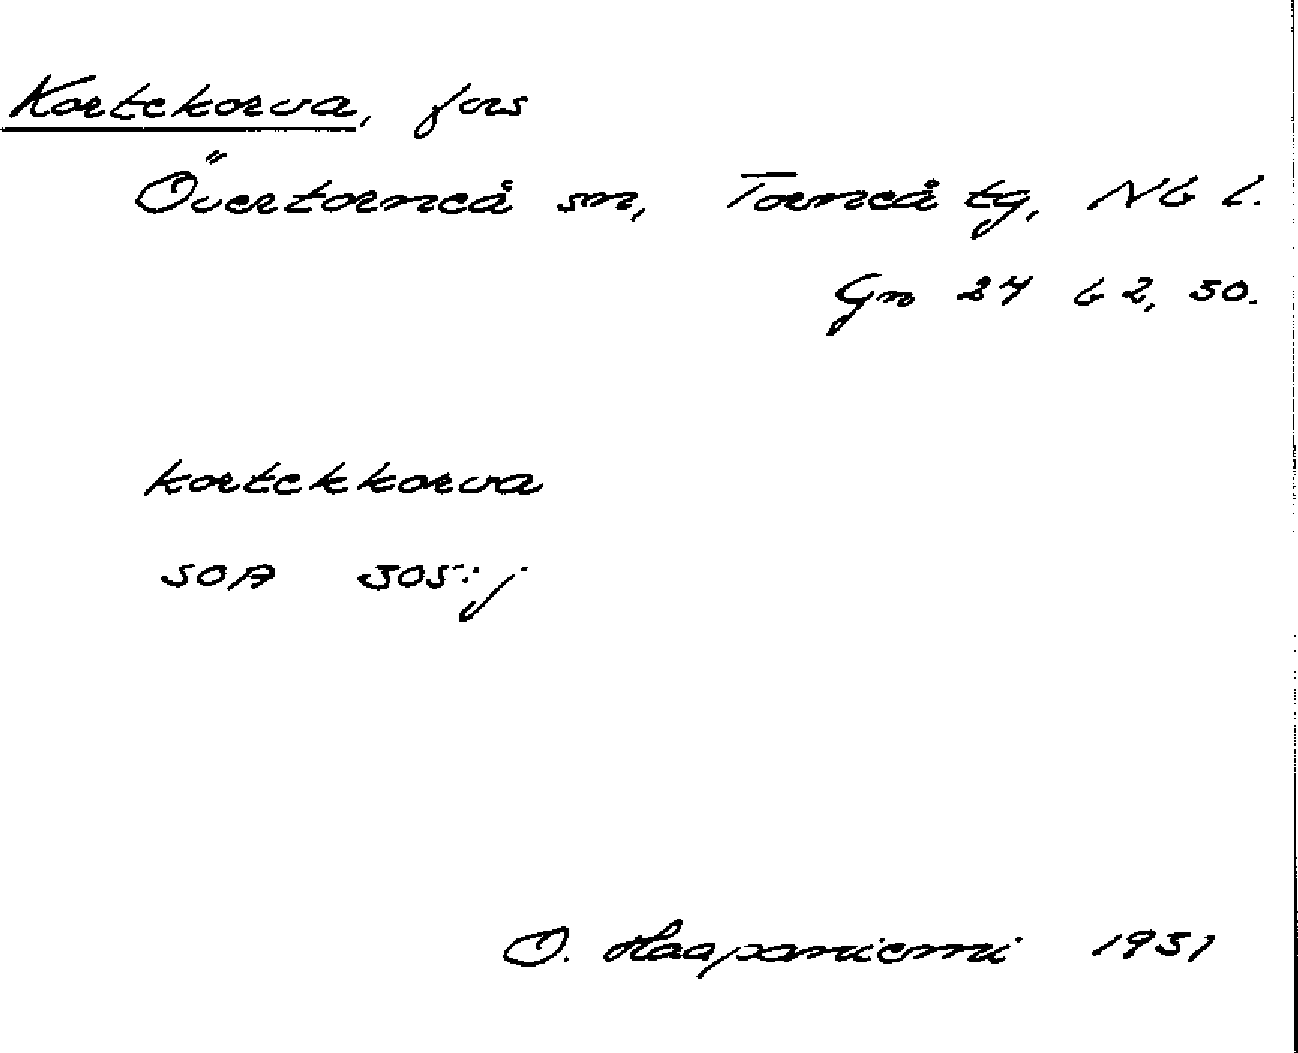 Kortekorva, fors
Övertorneå sn, Torneå tg, Nb l.
Gn 24 b 2, 50.
kortekkorva
SOA 305:j
O. Haapaniemi 1951